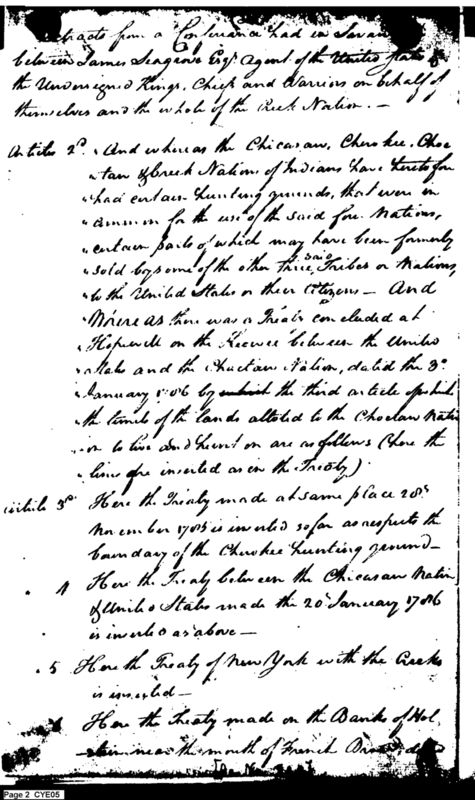 Extracts from a Conference had in Savan
between James Seagrove Esqr. Agent of the United States &
the Undersigned Kings, Chiefs and Warriors on behalf of
themselves and the whole of the Creek Nation. —
Article 2d. "And whereas the Chicasaw, Cherokee, Choc
"taw & Creek Nations of Indians have heretofor
"had certain hunting grounds, that were in
"common for the use of the said four Nations,
"certain parts of which may have been formerly
"sold by some of the other three said Tribes or Nations,
"to the United States or their Citizens — And
"Whereas there was a Treaty concluded at
"Hopewell on the Keowee between the United
"States and the Choctaw Nation, dated the 3d.
"January 1786 by which the third article of which
"the limits of the lands alloted to the Choctaw Nati
"on to live and hunt on are as follows (here the
"lines are inserted as in the Treaty)
Article 3d. Here the Treaty made at same place 28th
November 1785 is inserted so far as respects the
boundary of the Cherokee hunting ground —
4 Here the Treaty between the Chicasaw Nation
& United States made the 20th January 1786
is inserted as above —
5 Here the Treaty of New York with the Creeks
is inserted —
6 Here the Treaty made on the Banks of Hol
stein near the mouth of French Broad dated
Page 2 CYE05